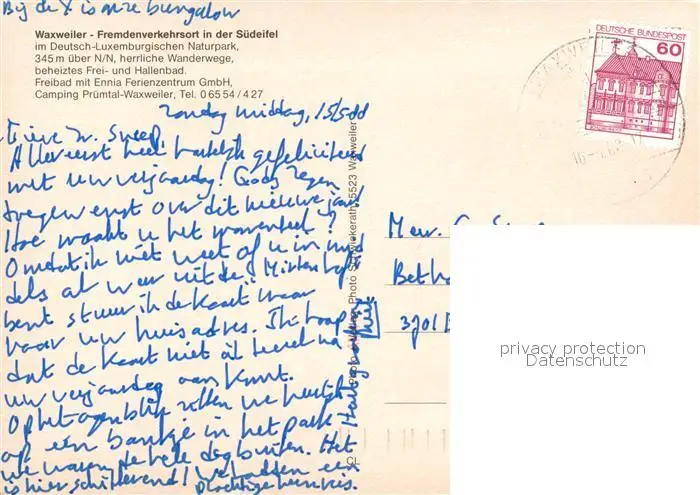 Bij de X is onze bungalow
Waxweiler - Fremdenverkehrsort in der Südeifel
im Deutsch-Luxemburgischen Naturpark,
345 m über N/N, herrliche Wanderwege,
beheiztes Frei- und Hallenbad.
Freibad mit Ennia Ferienzentrum GmbH,
Camping Prümtal-Waxweiler, Tel. 0 65 54 / 4 27
Zondag middag, 15/5-88
Lieve
Allereerst heel hartelijk gefeliciteerd
met uw verjaardag! Gods zegen
toegewenst over dit nieuwe jaar!
Hoe maakt u het momenteel?
Omdat ik niet weet of u inmid
dels al weer uit de
bent stuur ik de kaart maar
naar uw huisadres. Ik hoop
dat de kaart niet al te veel na
uw verjaardag aan komt.
Op het ogenblik zitten we heerlijk
op een bankje in het park
we waren de hele dag buiten. Het
is hier schitterend! We hadden een
prachtige heenreis.
Hartelijke
Photo
5523 Waxweiler
DEUTSCHE BUNDESPOST
60
Mevr.
Beth
3701
privacy protection
Datenschutz